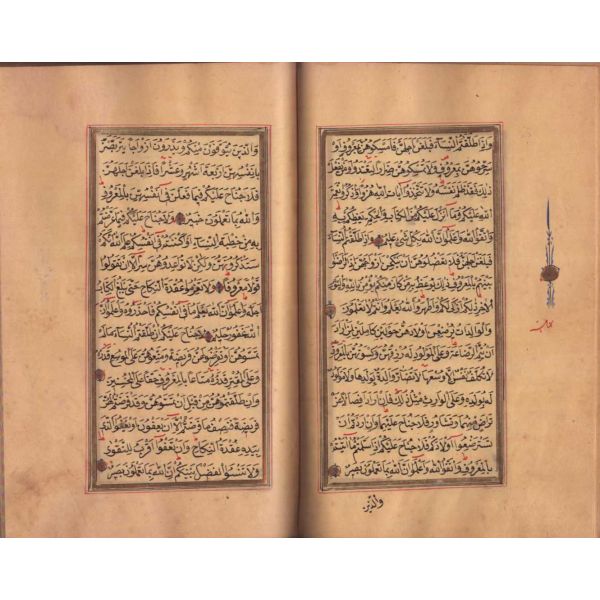 وَاِذَا طَلَّقْتُمُ النِّسَاءَ فَبَلَغْنَ اَجَلَهُنَّ فَاَمْسِكُوهُنَّ بِمَعْرُوفٍ اَوْ
سَرِّحُوهُنَّ بِمَعْرُوفٍ وَلَا تُمْسِكُوهُنَّ ضِرَارًا لِتَعْتَدُوا وَمَنْ يَفْعَلْ
ذٰلِكَ فَقَدْ ظَلَمَ نَفْسَهُ وَلَا تَتَّخِذُوا اٰيَاتِ اللهِ هُزُوًا وَاذْكُرُوا نِعْمَةَ
اللهِ عَلَيْكُمْ وَمَا اَنْزَلَ عَلَيْكُمْ مِنَ الْكِتَابِ وَالْحِكْمَةِ يَعِظُكُمْ بِهِ
وَاتَّقُوا اللهَ وَاعْلَمُوا اَنَّ اللهَ بِكُلِّ شَيْءٍ عَلِيمٌ وَاِذَا طَلَّقْتُمُ النِّسَاءَ
فَبَلَغْنَ اَجَلَهُنَّ فَلَا تَعْضُلُوهُنَّ اَنْ يَنْكِحْنَ اَزْوَاجَهُنَّ اِذَا تَرَاضَوْا
بَيْنَهُمْ بِالْمَعْرُوفِ ذٰلِكَ يُوعَظُ بِهِ مَنْ كَانَ مِنْكُمْ يُؤْمِنُ بِاللهِ وَالْيَوْمِ
الْاٰخِرِ ذٰلِكُمْ اَزْكٰى لَكُمْ وَاَطْهَرُ وَاللهُ يَعْلَمُ وَاَنْتُمْ لَا تَعْلَمُونَ
وَالْوَالِدَاتُ يُرْضِعْنَ اَوْلَادَهُنَّ حَوْلَيْنِ كَامِلَيْنِ لِمَنْ اَرَادَ
اَنْ يُتِمَّ الرَّضَاعَةَ وَعَلَى الْمَوْلُودِ لَهُ رِزْقُهُنَّ وَكِسْوَتُهُنَّ بِالْمَعْرُوفِ
لَا تُكَلَّفُ نَفْسٌ اِلَّا وُسْعَهَا لَا تُضَارَّ وَالِدَةٌ بِوَلَدِهَا وَلَا مَوْلُودٌ
لَهُ بِوَلَدِهِ وَعَلَى الْوَارِثِ مِثْلُ ذٰلِكَ فَاِنْ اَرَادَا فِصَالًا عَنْ
تَرَاضٍ مِنْهُمَا وَتَشَاوُرٍ فَلَا جُنَاحَ عَلَيْهِمَا وَاِنْ اَرَدْتُمْ اَنْ
تَسْتَرْضِعُوا اَوْلَادَكُمْ فَلَا جُنَاحَ عَلَيْكُمْ اِذَا سَلَّمْتُمْ مَا اٰتَيْتُمْ
بِالْمَعْرُوفِ وَاتَّقُوا اللهَ وَاعْلَمُوا اَنَّ اللهَ بِمَا تَعْمَلُونَ بَصِيرٌ
وَالَّذِينَ
وَالَّذِينَ يُتَوَفَّوْنَ مِنْكُمْ وَيَذَرُونَ اَزْوَاجًا يَتَرَبَّصْنَ
بِاَنْفُسِهِنَّ اَرْبَعَةَ اَشْهُرٍ وَعَشْرًا فَاِذَا بَلَغْنَ اَجَلَهُنَّ
فَلَا جُنَاحَ عَلَيْكُمْ فِيمَا فَعَلْنَ فِي اَنْفُسِهِنَّ بِالْمَعْرُوفِ
وَاللهُ بِمَا تَعْمَلُونَ خَبِيرٌ وَلَا جُنَاحَ عَلَيْكُمْ فِيمَا عَرَّضْتُمْ
بِهِ مِنْ خِطْبَةِ النِّسَاءِ اَوْ اَكْنَنْتُمْ فِي اَنْفُسِكُمْ عَلِمَ اللهُ اَنَّكُمْ
سَتَذْكُرُونَهُنَّ وَلٰكِنْ لَا تُوَاعِدُوهُنَّ سِرًّا اِلَّا اَنْ تَقُولُوا
قَوْلًا مَعْرُوفًا وَلَا تَعْزِمُوا عُقْدَةَ النِّكَاحِ حَتّٰى يَبْلُغَ الْكِتَابُ
اَجَلَهُ وَاعْلَمُوا اَنَّ اللهَ يَعْلَمُ مَا فِي اَنْفُسِكُمْ فَاحْذَرُوهُ وَاعْلَمُوا اَنَّ
اللهَ غَفُورٌ حَلِيمٌ لَا جُنَاحَ عَلَيْكُمْ اِنْ طَلَّقْتُمُ النِّسَاءَ مَا لَمْ
تَمَسُّوهُنَّ اَوْ تَفْرِضُوا لَهُنَّ فَرِيضَةً وَمَتِّعُوهُنَّ عَلَى الْمُوسِعِ قَدَرُهُ
وَعَلَى الْمُقْتِرِ قَدَرُهُ مَتَاعًا بِالْمَعْرُوفِ حَقًّا عَلَى الْمُحْسِنِينَ
وَاِنْ طَلَّقْتُمُوهُنَّ مِنْ قَبْلِ اَنْ تَمَسُّوهُنَّ وَقَدْ فَرَضْتُمْ لَهُنَّ
فَرِيضَةً فَنِصْفُ مَا فَرَضْتُمْ اِلَّا اَنْ يَعْفُونَ اَوْ يَعْفُوَ الَّذِي
بِيَدِهِ عُقْدَةُ النِّكَاحِ وَاَنْ تَعْفُوا اَقْرَبُ لِلتَّقْوٰى
وَلَا تَنْسَوُا الْفَضْلَ بَيْنَكُمْ اِنَّ اللهَ بِمَا تَعْمَلُونَ بَصِيرٌ